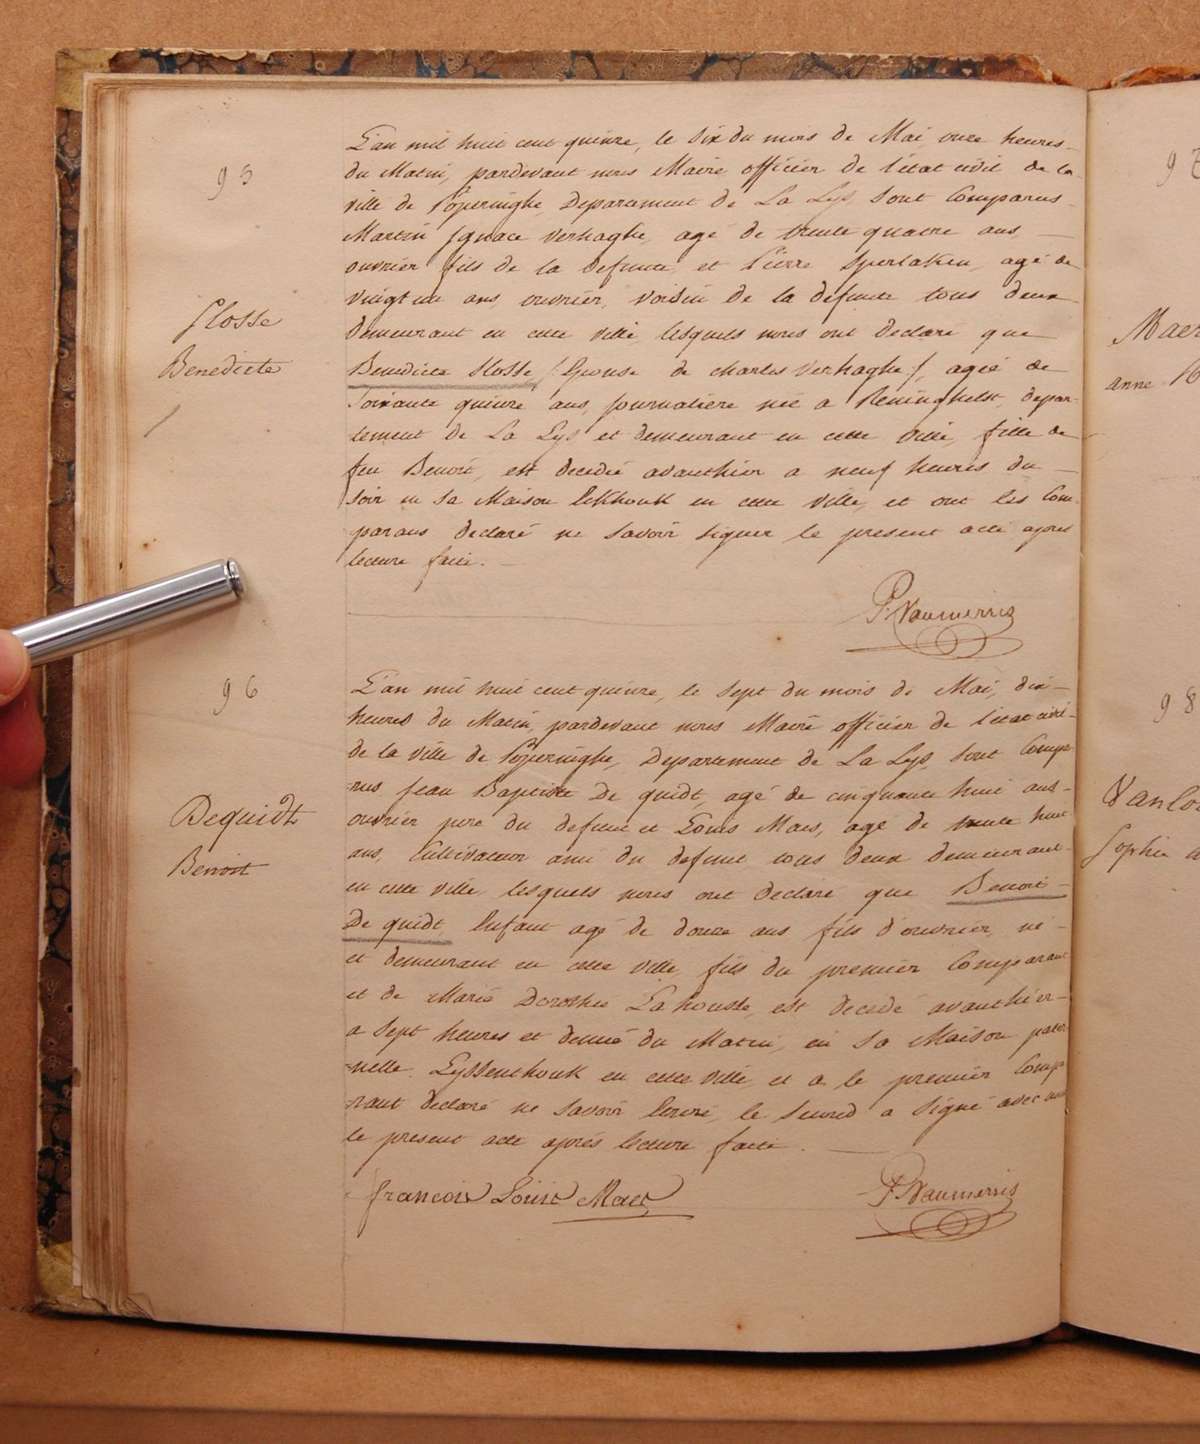 95
L'an mil huit cent quinze, le Six du mois de Mai, onze heures
du Matin, pardevant nous Maire officier de l'état civil de la
ville de Poperinghe, Departement de La Lys, Sont Comparus
Martin Ignace Verhaghe, agé de trente quatre ans,
ouvrier fils de la defunte, et Pierre Sperlaken, agé de
vingt un ans, ouvrier, voisin de la defunte tous deux
demeurant en cette ville, lesquels nous ont declaré que
Flosse
Benedicte
Benedicte Flosse (Epouse de Charles Verhaghe), agée de
Soixante quinze ans, Journaliere née a Reninghelst, depar-
tement de La Lys et demeurant en cette Ville, fille de
feu Benoit, est decedée avanthier a neuf heures du
Soir en Sa Maison Lekhouk en cette Ville, et ont les Com-
parans declaré ne Savoir Signer le present acte après
lecture faite.
P. Vanmerris
96
L'an mil huit cent quinze, le Sept du mois de Mai, dix
heures du Matin, pardevant nous Maire officier de l'état civil
de la ville de Poperinghe, Departement de La Lys, Sont Compa-
rus Jean Baptiste De quidt, agé de cinquante huit ans
Dequidt
Benoit
ouvrier pere du defunt et Louis Maes, agé de trente huit
ans, Cultivateur ami du defunt tous deux demeurant
en cette ville, lesquels nous ont declaré que Benoit
De quidt, Enfant agé de douze ans fils d'ouvrier, né
et demeurant en cette ville, fils du premier Comparant
et de Marie Dorothée Lahousse, est decedé avanthier
a Sept heures et demie du Matin, en Sa Maison pater-
nelle, Eyssenthouk en cette ville et a le premier Compa-
rant declaré ne Savoir Ecrire, le Second a Signé avec nous
le present acte après lecture faite.
francois Louis Maes
P. Vanmerris
97
Maer
anne
98
Vanlo
Sophie